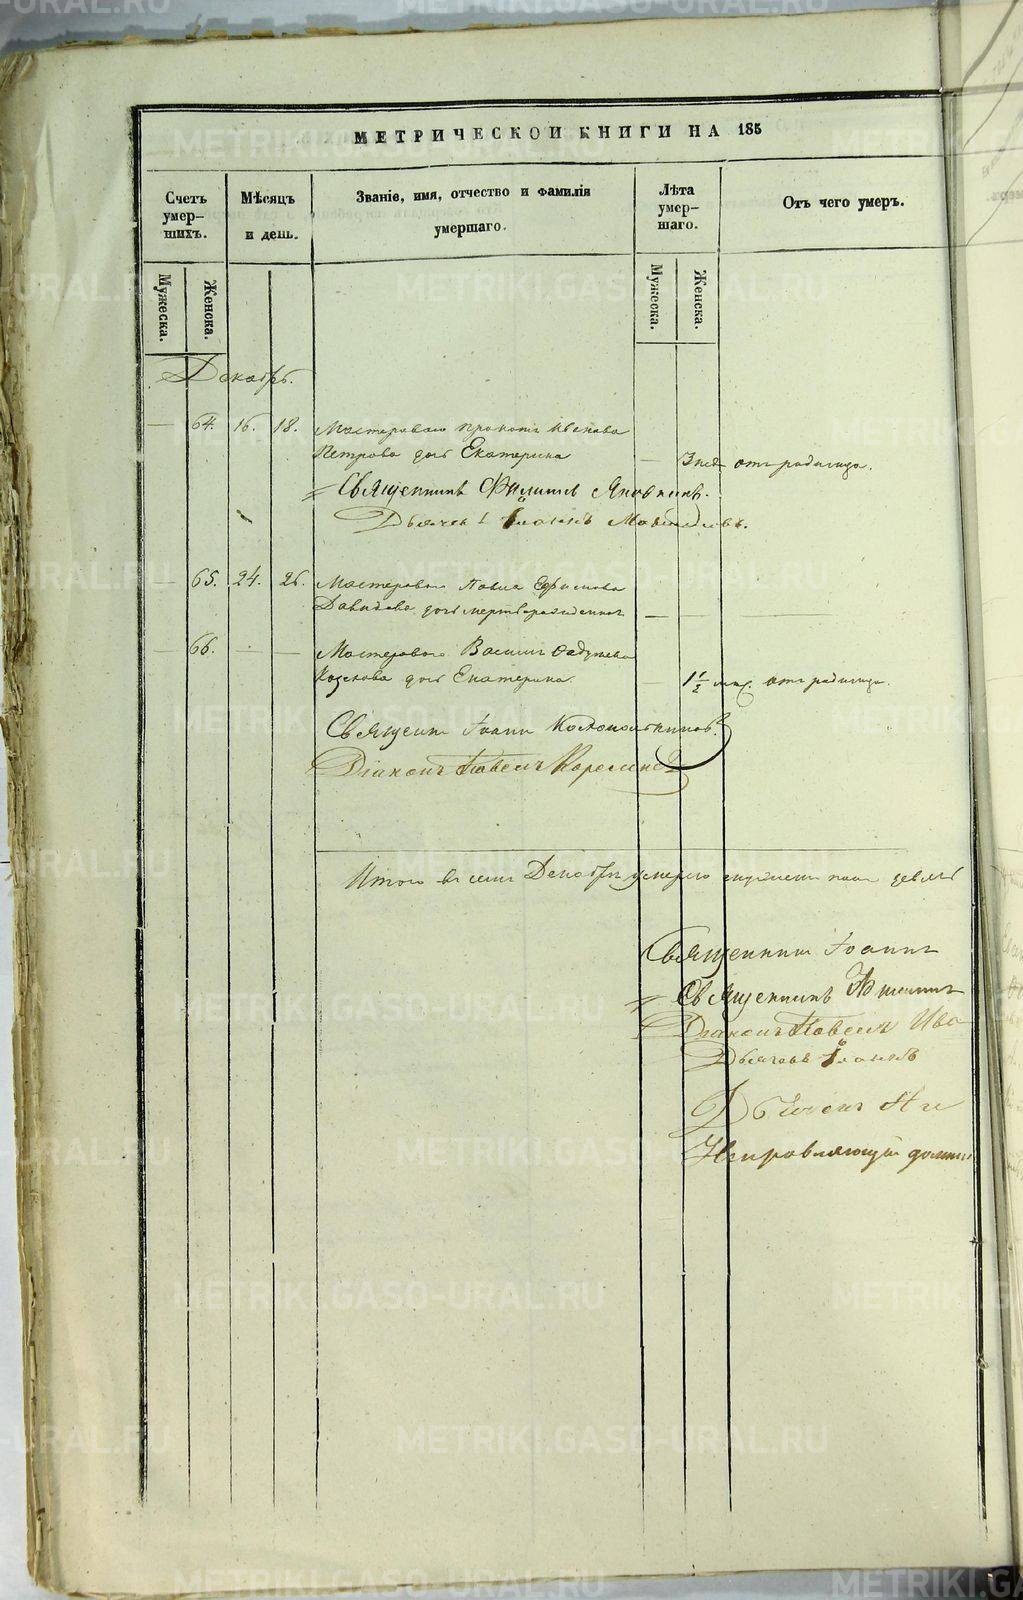 МЕТРИЧЕСКОЙ КНИГИ НА 185
Счетъ умер-шихъ.
Мѣсяцъ и день.
Званіе, имя, отчество и фамилія умершаго.
Лѣта умер-шаго.
Отъ чего умеръ.
Мужеска.
Женска.
Мужеска.
Женска.
Декабрь.
— 64. 16. 18. Мастероваго Иванова
Петрова дочь Екатерина — 3 нед. отъ родимца.
Священникъ Филиппъ
Дьячекъ Іоаннъ
— 65. 24. 26. Мастероваго Павла Ефимова
Давыдова дочь мертворожденная — — —
— 66. — — Мастероваго Василія
Козлова дочь Екатерина — 1½ мѣс. отъ родимца.
Священникъ Іоаннъ
Діаконъ Павелъ Карелинъ
Итого въ семъ Декабрѣ умерло пола
Священникъ Іоаннъ
Священникъ Филиппъ
Діаконъ Павелъ Ива
Дьячекъ Іоаннъ
Дьячекъ
Исправляющій должн
METRIKI.GASO-URAL.RU